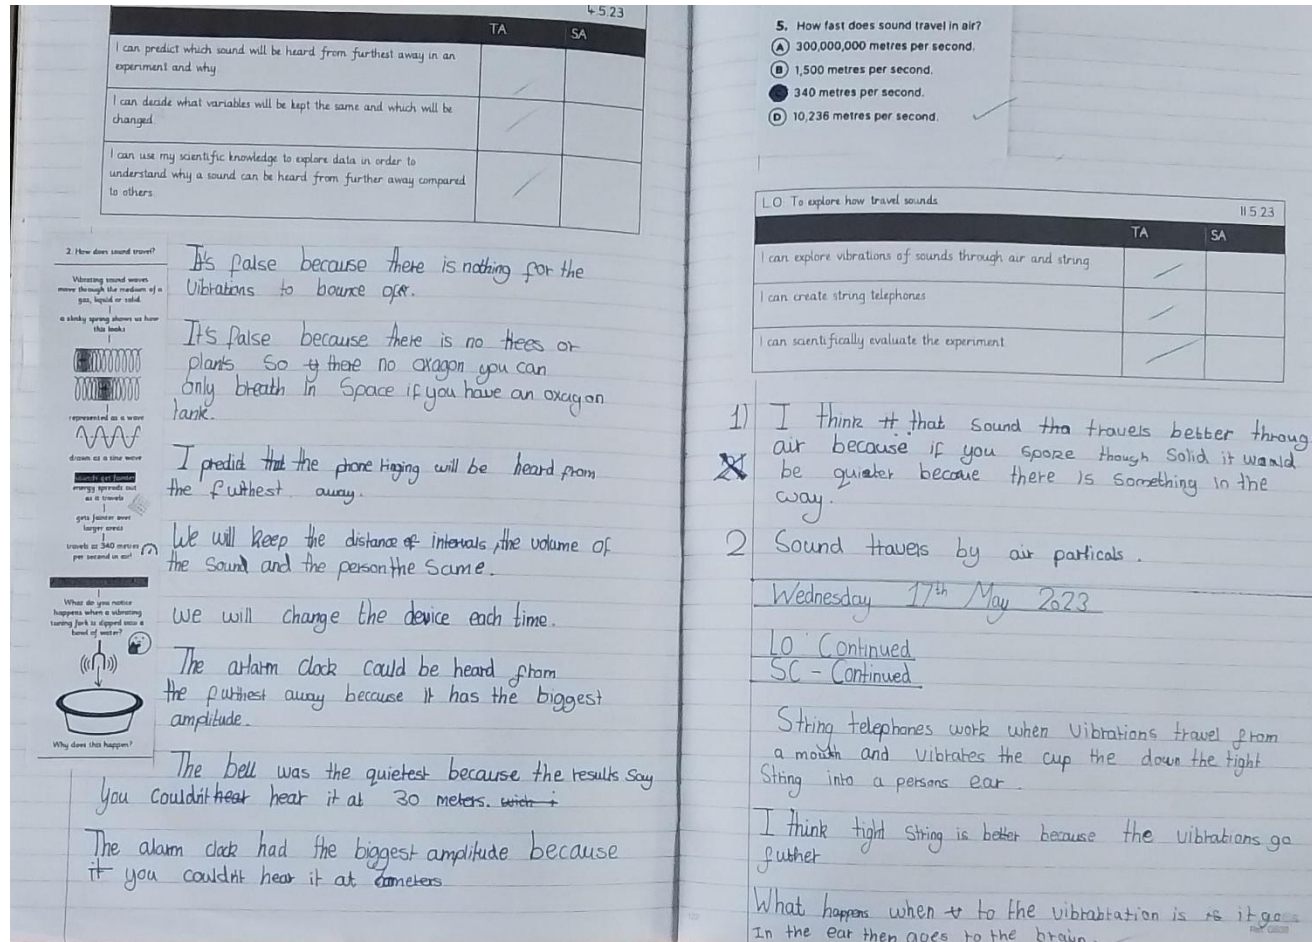 4.5.23
TA SA
I can predict which sound will be heard from furthest away in an
experiment and why.
I can decide what variables will be kept the same and which will be
changed.
I can use my scientific knowledge to explore data in order to
understand why a sound can be heard from further away compared
to others.
2. How does sound travel?
Vibrating sound waves
move through the medium of a
gas, liquid or solid.
a slinky spring shows us how
this looks
represented as a wave
drawn as a sine wave
sounds get fainter
energy spreads out
as it travels
gets fainter over
larger areas
travels at 340 metres
per second in air!
What do you notice
happens when a vibrating
tuning fork is dipped into a
bowl of water?
Why does this happen?
It's false because there is nothing for the
vibrations to bounce off.
It's false because there is no trees or
plants So there no oxagon you can
only breath In Space if you have an oxagon
tank.
I predict that the phone ringing will be heard from
the furthest away.
We will keep the distance of intervals, the volume of
the sound and the person the same.
we will change the device each time.
The alarm clock could be heard from
the furthest away because it has the biggest
amplitude.
The bell was the quietest because the results say
you couldn't hear hear it at 30 meters. wich i
The alarm clock had the biggest amplitude because
it you couldnt hear it at
5. How fast does sound travel in air?
A 300,000,000 metres per second.
B 1,500 metres per second.
340 metres per second.
D 10,236 metres per second.
LO To explore how travel sounds 11.5.23
TA SA
I can explore vibrations of sounds through air and string
I can create string telephones
I can scientifically evaluate the experiment
1) I think that sound tha travels better throug
air because if you spoke though solid it would
be quieter because there is something in the
way.
2 Sound travels by air particals.
Wednesday 17th May 2023
LO Continued
SC - Continued
String telephones work when vibrations travel from
a mouth and vibrates the cup the down the tight
String into a persons ear.
I think tight string is better because the vibrations go
futher
What happens when to the vibrabtration is it goes
In the ear then goes to the brain.